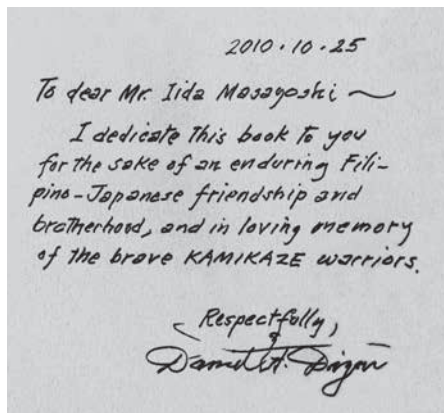 2010・10・25
To dear Mr. Iida Masayoshi ~
I dedicate this book to you
for the sake of an enduring Fili-
pino-Japanese friendship and
brotherhood, and in loving memory
of the brave KAMIKAZE warriors.
Respectfully,
Daniel H. Dizon